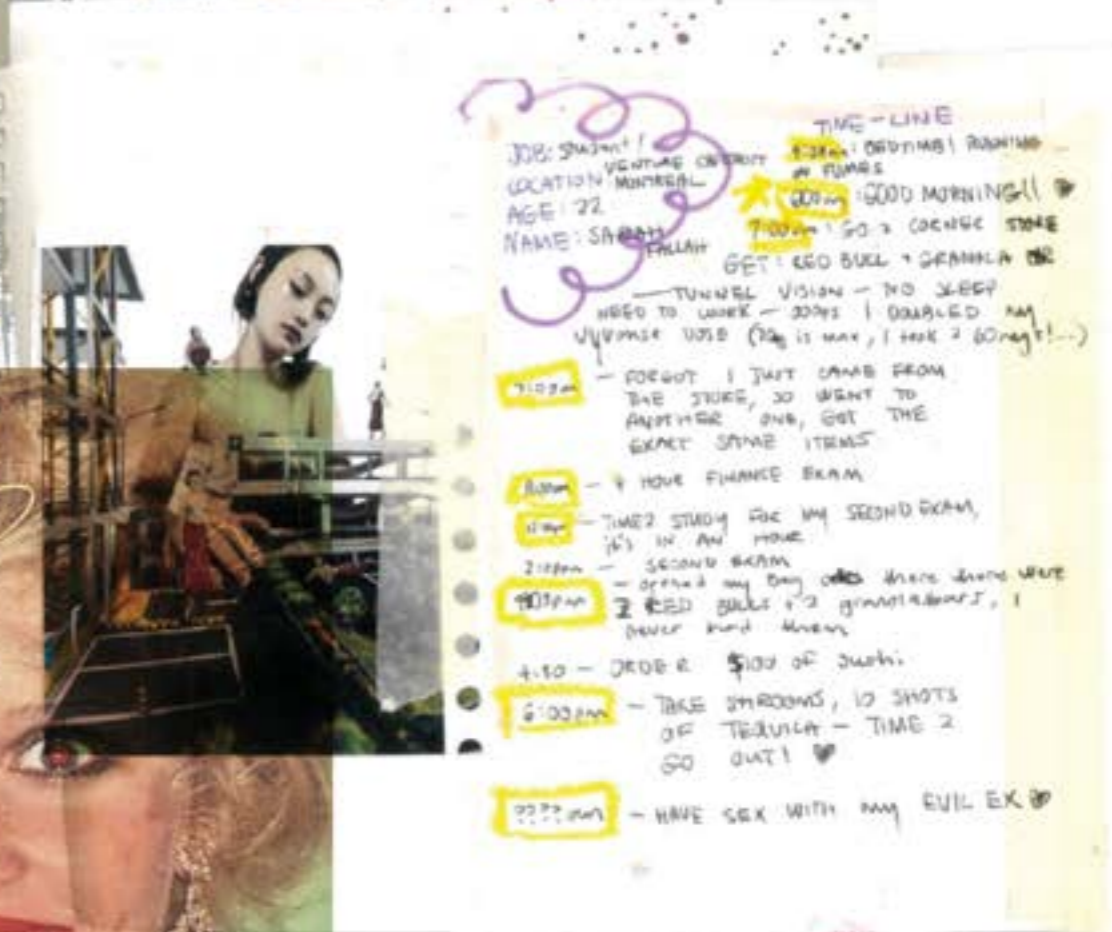 JOB: Student!
VENTURE
LOCATION: MONTREAL
AGE: 22
NAME: SARAH
FALLAH
TIME-LINE
: BEDTIME! RUNNING
ON FUMES
6:00am : GOOD MORNING!!
7:00am : GO 2 CORNER STORE
GET: RED BULL + GRANOLA
— TUNNEL VISION — NO SLEEP
NEED TO WORK — I DOUBLED my
Vyvanse DOSE ( is max, I took 2 60mg's!...)
— FORGOT I JUST CAME FROM
THE STORE, SO WENT TO
ANOTHER ONE, GOT THE
EXACT SAME ITEMS
— 4 HOUR FINANCE EXAM
— TIME 2 STUDY FOR MY SECOND EXAM,
it's IN AN HOUR
2:00pm — SECOND EXAM
— opened my bag there were
2 RED BULLS + 2 granola bars, I
never had them
4:30 — ORDER $100 of sushi
6:00pm — TAKE SHROOMS, 10 SHOTS
OF TEQUILA — TIME 2
GO OUT!
????am — HAVE SEX WITH my EVIL EX